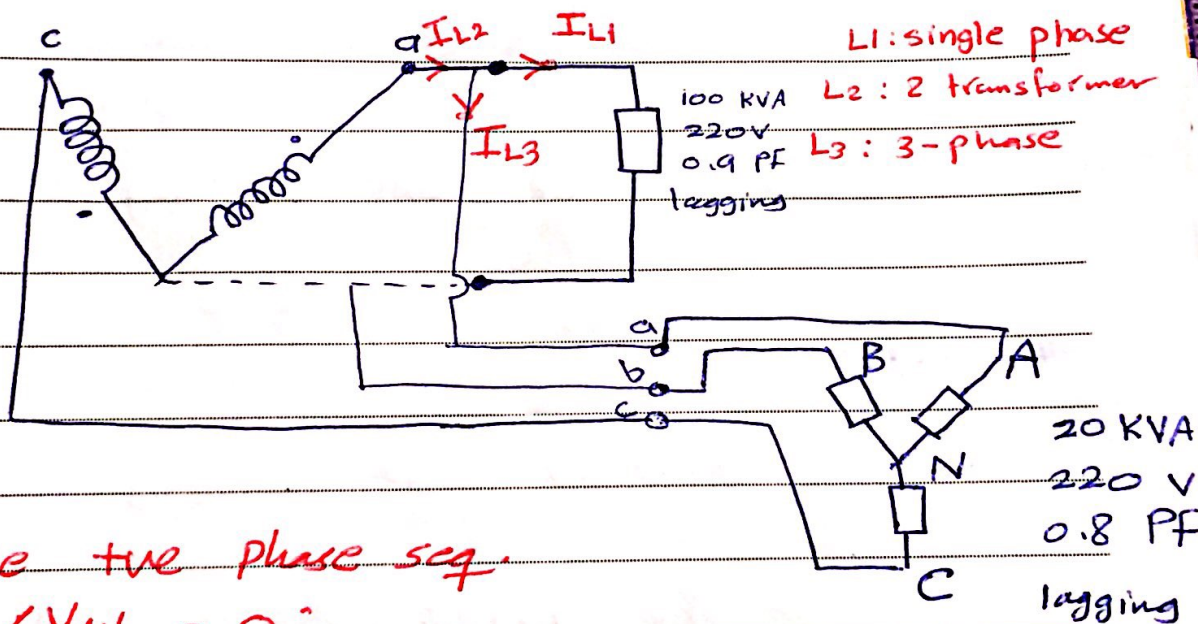 c
a
IL2
IL1
L1: single phase
L2 : 2 transformer
L3 : 3-phase
IL3
100 KVA
220V
0.9 PF
lagging
a
b
c
B
A
N
C
20 KVA
220 V
0.8 PF
lagging
+ve phase seq.